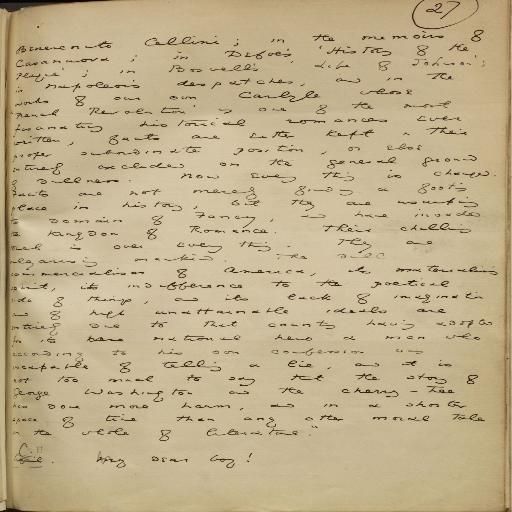 27
Benevenuto Cellini; in the memoirs of
Casanova; in Defoe's 'History of the
Plague'; in Boswell's Life of Johnson;
in Napoleon's despatches, and in the
works of our own Carlyle whose
'French Revolution' is one of the most
fascinating historical romances ever
written, facts are either kept in their
proper subordinate position, or else
entirely excluded on the general ground
of dullness. Now everything is changed.
Facts are not merely finding a footing
place in history, but they are usurping
the domain of Fancy, and have invaded
the kingdom of Romance. Their chilling
touch is over everything. They are
vulgarising mankind. The
commercialism of America, its materialising
spirit, its indifference to the poetical
side of things, and its lack of imagination
and of high unattainable ideals are
entirely due to that country having adopted
for its national hero a man who
according to his own confession was
incapable of telling a lie, and it is
not too much to say that the story of
George Washington and the cherry-tree
has done more harm, and in a shorter
space of time than any other moral tale
in the whole of literature."
C. My dear boy!